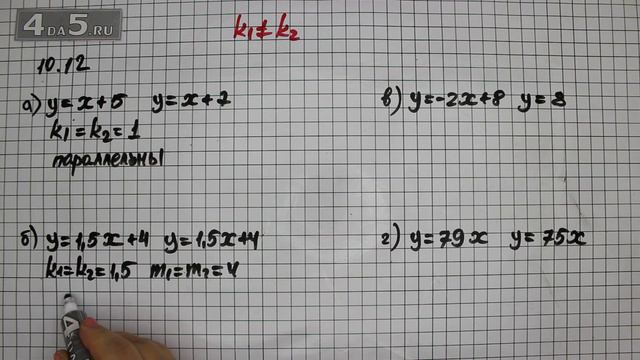 4DA5.RU
k₁≠k₂
10.12
а) y=x+5 y=x+7
k₁=k₂=1
параллельны
б) y=1,5x+4 y=1,5x+4
k₁=k₂=1,5 m₁=m₂=4
в) y=-2x+8 y=8
г) y=79x y=75x